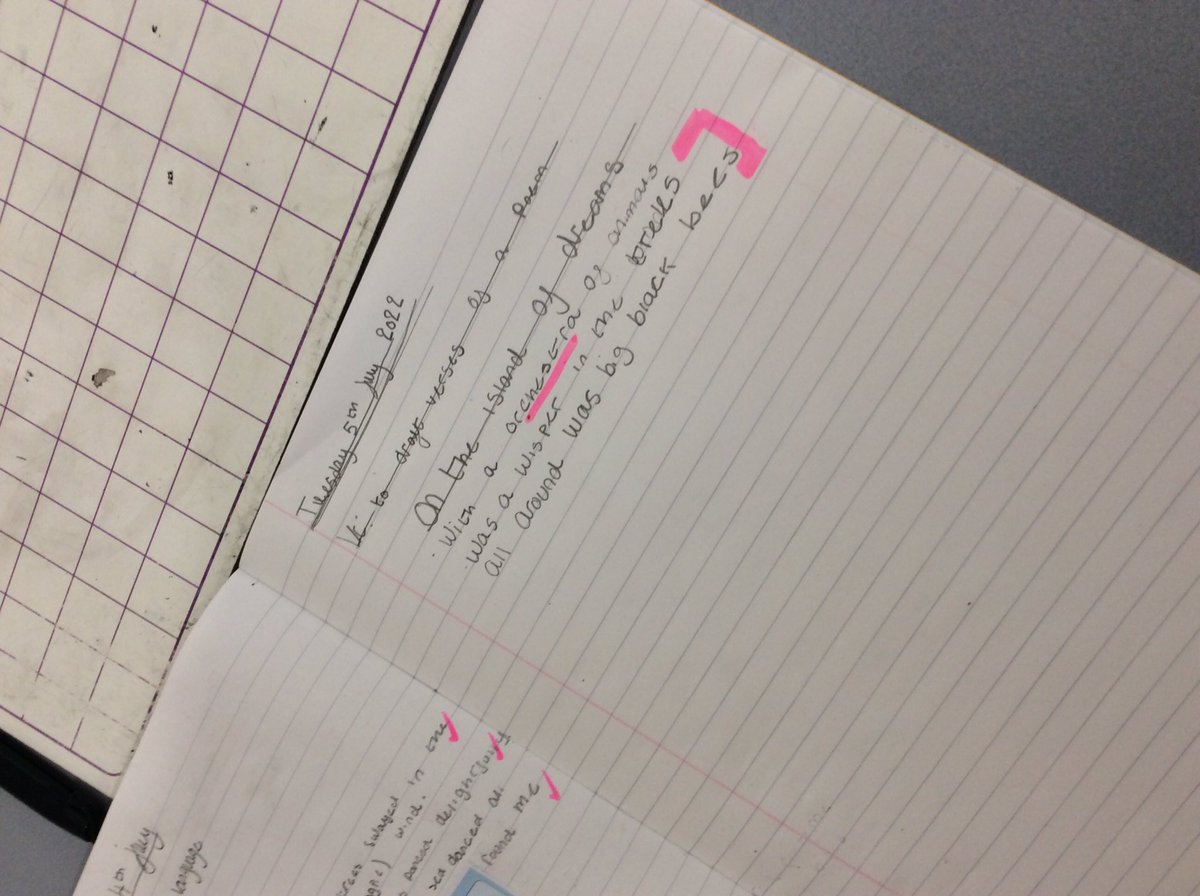 Tuesday 5th July 2022
to draft verses of a poem
On the island of dreams
· With a orchestra of animals
· was a wisper in the treels
all around was big black bees
4th July
language
swayed in the
wind.
forest delightfully
danced all
round me